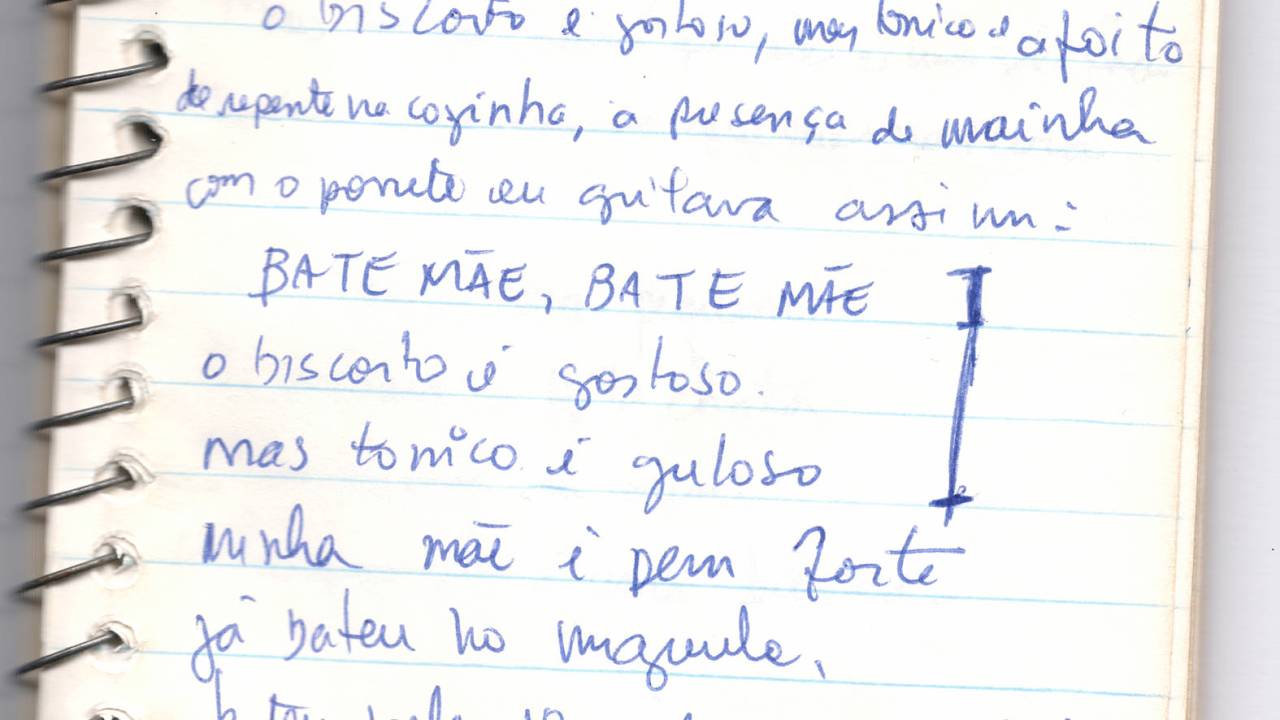 o biscoito é gostoso, mas tonico é afoito
de repente na cozinha, a presença de mainha
com o porrete eu gritava assim:
BATE MÃE, BATE MÃE
o biscoito é gostoso.
mas tonico é guloso
minha mãe é bem forte
já bateu no